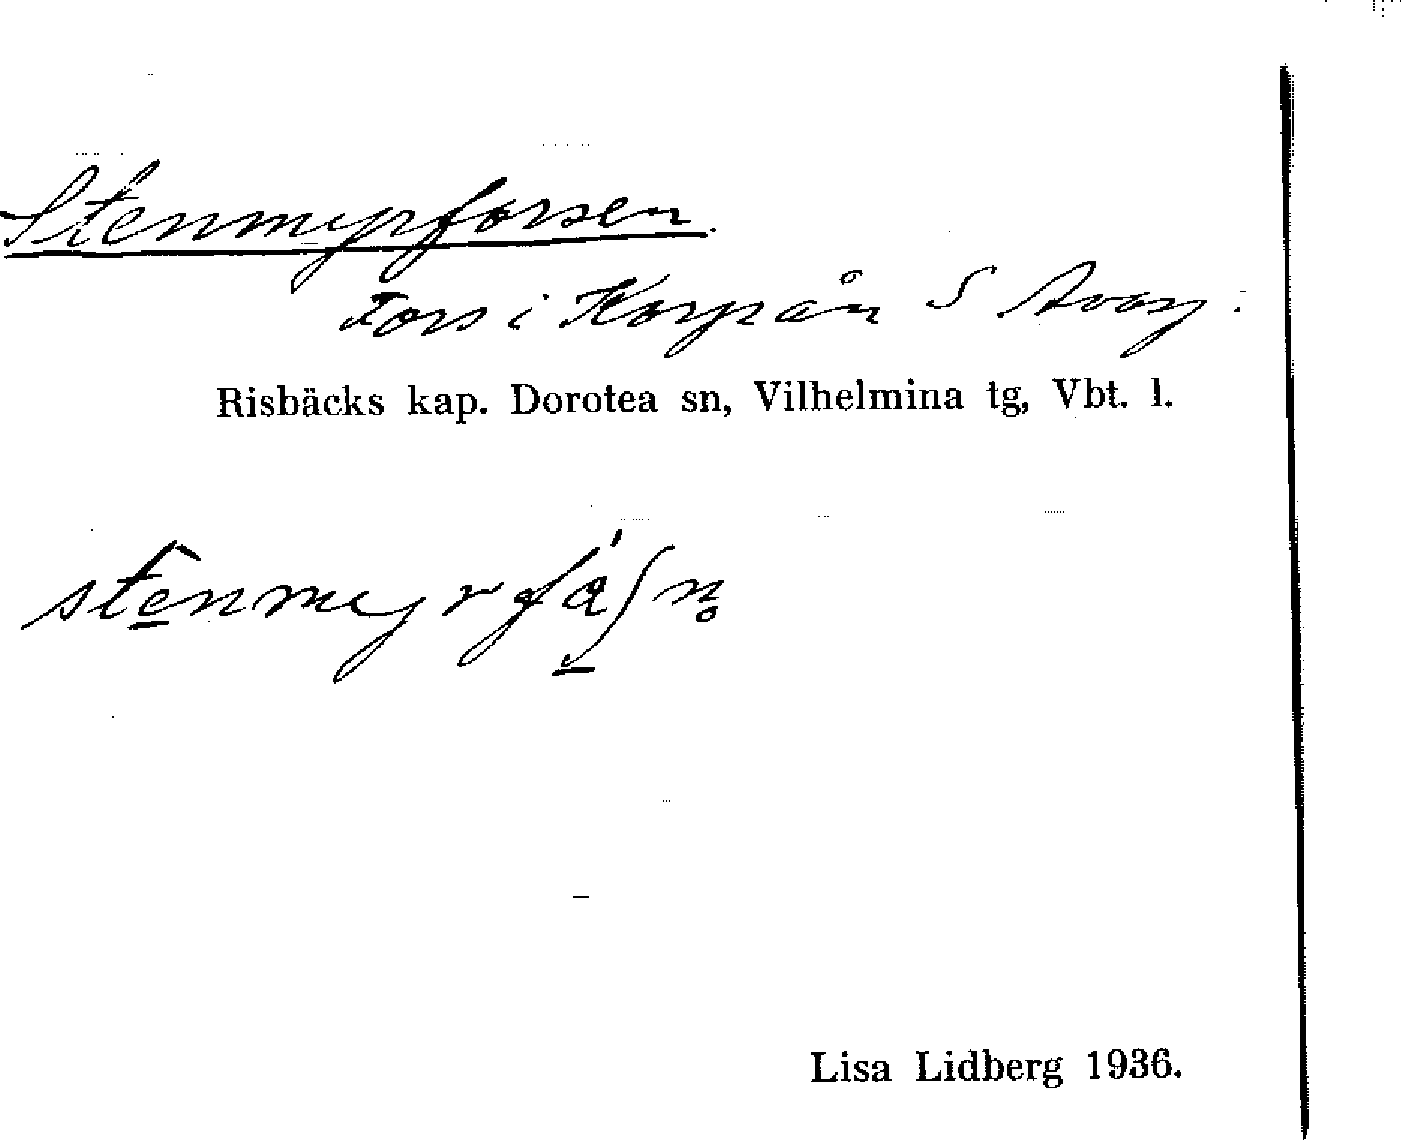 Stenmyrforsen.
Fors i Korpån S Avasj.
Risbäcks kap. Dorotea sn, Vilhelmina tg, Vbt. l.
Lisa Lidberg 1936.